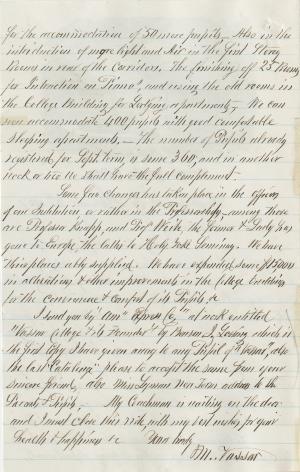 for the accommodation of 50 more pupils, — Also in the
introduction of more light and Air in the first Story
Rooms in rear of the Corridors. The finishing off 25 Rooms
for Instruction on Piano's, and using the old rooms in
the College Building for Lodging apartments, — We can
now accommodate 400 pupils with good comfortable
sleeping apartments. — The number of Pupils already
registered for Sept term is some 360, and in another
week or two we shall have the full compliment —
Some few changes has taken place in the officers
of our Institution, or rather in the Professorships — among those
are Professor Knapp, and Profs the former & Lady has
gone to Europe, the latter to . We have
their places ably supplied. We have expended some
in alterations & other improvements in the College buildings
for the convenience & comfort of its Pupils, &c
I send you by Amn Express Co a work entitled
"Vassar College & its Founder" by Benson J. Lossing which is
the first Copy I have given away to any Pupil of "Vassar", also
the last Catalogue please to accept the same from your
sincere friend, also Miss Lyman New Years address to the
Parents & Pupils, — My Coachman is waiting at the door
and I must close this with my best wishes for your
Health & happiness &c
M. Vassar